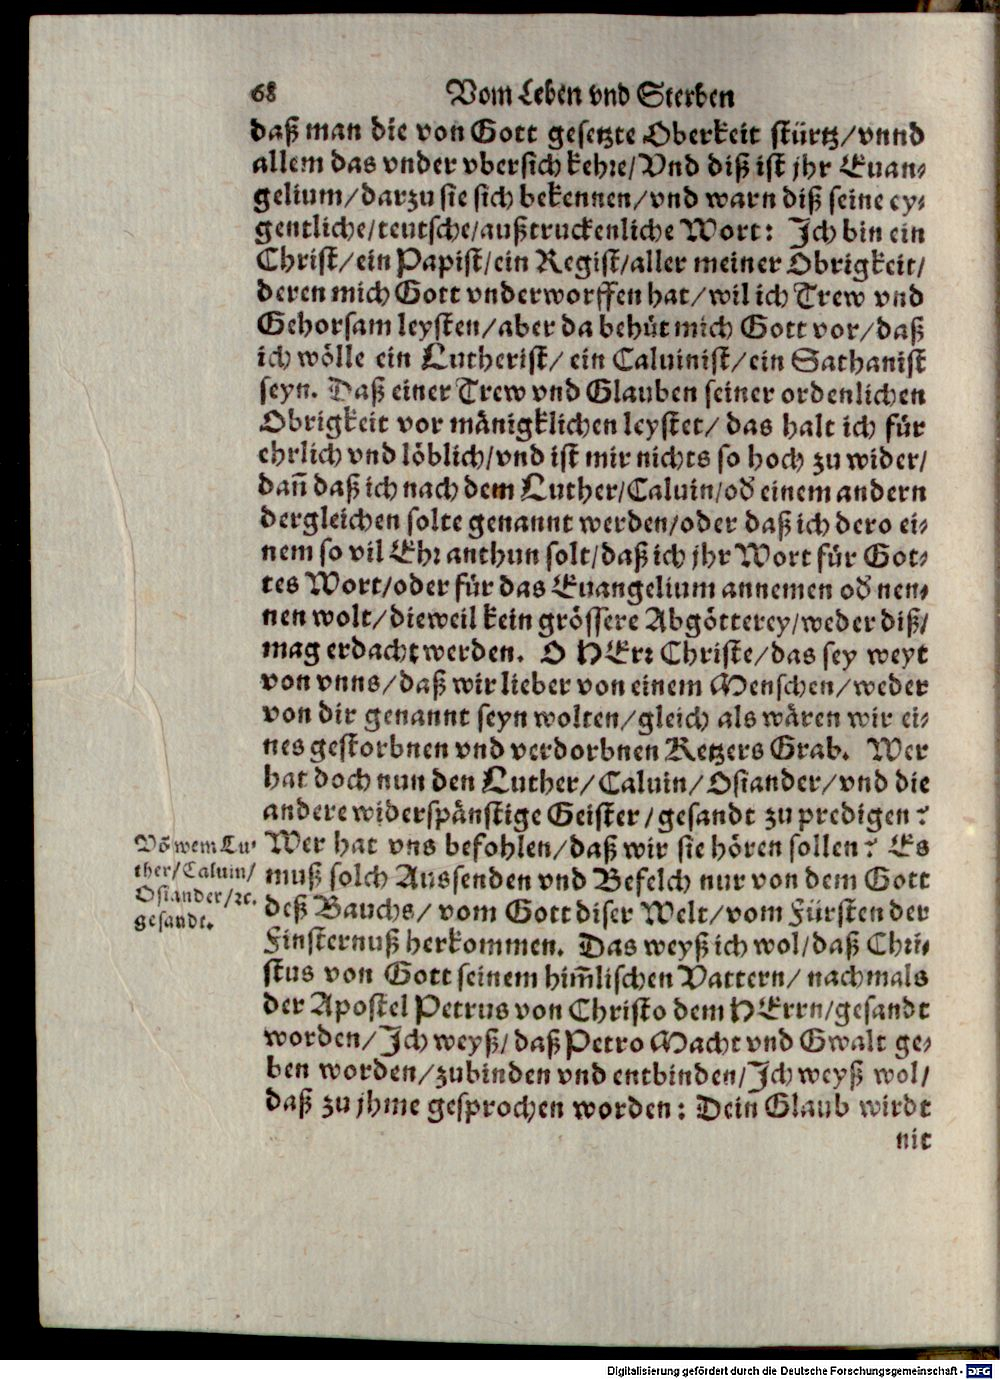 68 Vom Leben vnd Sterben
daß man die von Gott gesetzte Oberkeit stürtz/vnnd
allem das vnder vbersich kehre/Vnd diß ist jhr Euan-
gelium/darzu sie sich bekennen/vnd warn diß seine ey-
gentliche/teutsche/außtruckenliche Wort: Ich bin ein
Christ/ein Papist/ein Regist/aller meiner Obrigkeit/
deren mich Gott vnderworffen hat/wil ich Trew vnd
Gehorsam leysten/aber da behüt mich Gott vor/daß
ich wölle ein Lutherist/ein Caluinist/ein Sathanist
seyn. Daß einer Trew vnd Glauben seiner ordenlichen
Obrigkeit vor mänigklichen leystet/das halt ich für
ehrlich vnd löblich/vnd ist mir nichts so hoch zu wider/
dañ daß ich nach dem Luther/Caluin/od einem andern
dergleichen solte genannt werden/oder daß ich dero ei-
nem so vil Ehr anthun solt/daß ich jhr Wort für Got-
tes Wort/oder für das Euangelium annemen od nen-
nen wolt/dieweil kein grössere Abgötterey/weder diß/
mag erdacht werden. O HErr Christe/das sey weyt
von vnns/daß wir lieber von einem Menschen/weder
von dir genannt seyn wolten/gleich als wären wir ei-
nes gestorbnen vnd verdorbnen Ketzers Grab. Wer
hat doch nun den Luther/Caluin/Osiander/vnd die
andere widerspänstige Geister/gesandt zu predigen?
Wer hat vns befohlen/daß wir sie hören sollen? Es
muß solch Aussenden vnd Befelch nur von dem Gott
deß Bauchs/vom Gott diser Welt/vom Fürsten der
Finsternuß herkommen. Das weyß ich wol/daß Chri-
stus von Gott seinem him̃lischen Vattern/nachmals
der Apostel Petrus von Christo dem HErrn/gesandt
worden/Ich weyß/daß Petro Macht vnd Gwalt ge-
ben worden/zubinden vnd entbinden/Ich weyß wol/
daß zu jhme gesprochen worden: Dein Glaub wirdt
nit
Võ wem Lu-
ther/Caluin/
Osiander/ꝛc.
gesandt.
Digitalisierung gefördert durch die Deutsche Forschungsgemeinschaft - DFG